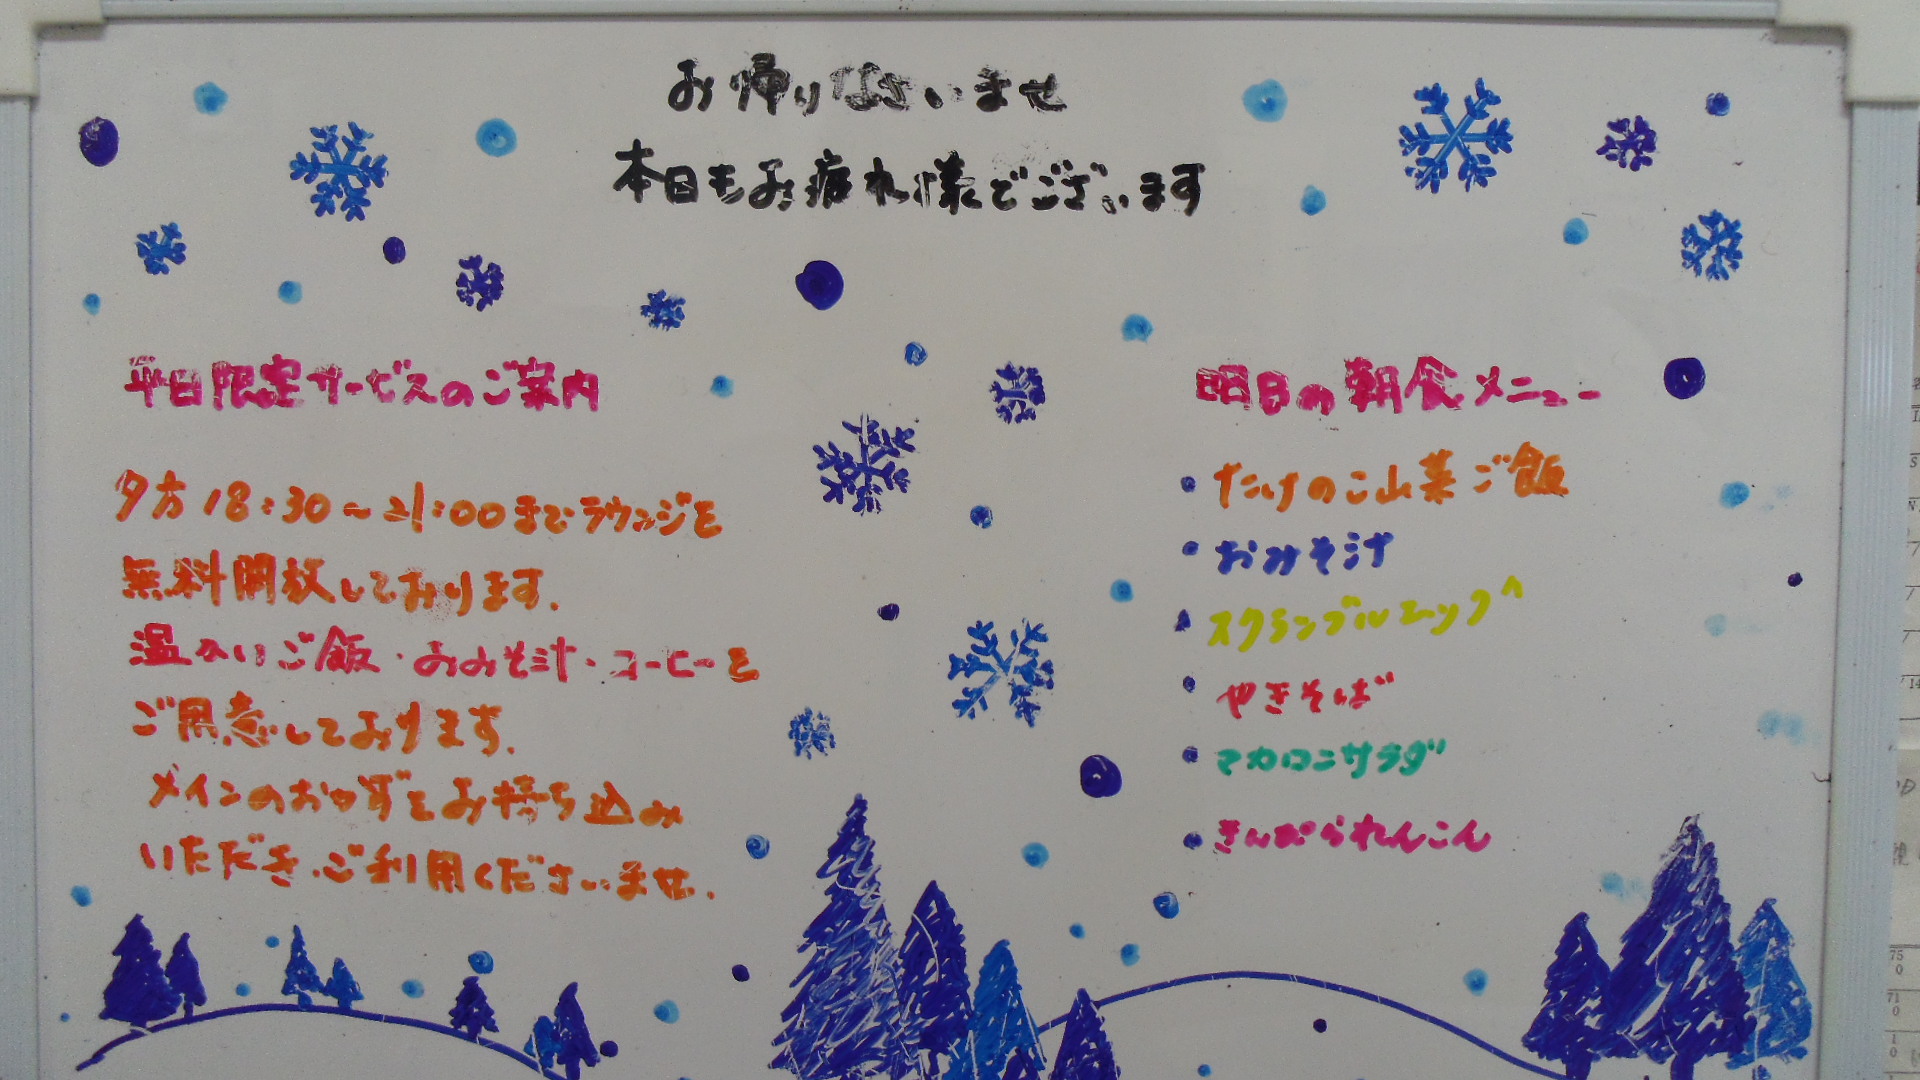 お帰りなさいませ
本日もお疲れ様でございます
平日限定サービスのご案内
夕方18:30～21:00までラウンジを
無料開放しております.
温かいご飯・おみそ汁・コーヒーを
ご用意しております.
メインのおかずをお持ち込み
いただき、ご利用くださいませ.
明日の朝食メニュー
・たけのこ山菜ご飯
・おみそ汁
・スクランブルエッグ
・やきそば
・マカロニサラダ
・きんぴられんこん